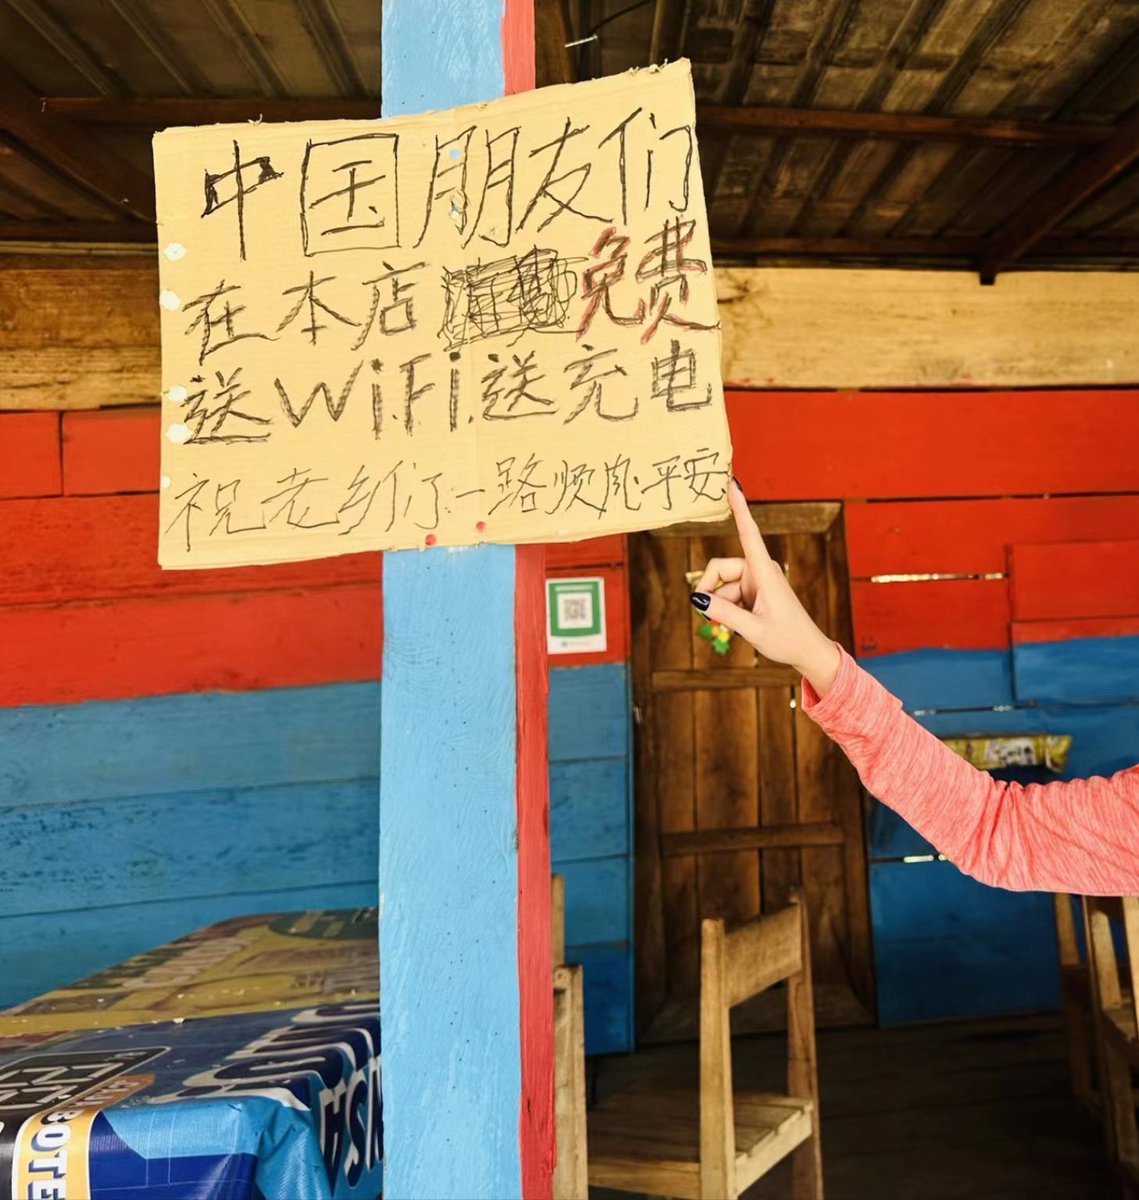 中国朋友们
在本店免费
送WiFi.送充电
祝老乡们了一路顺心平安